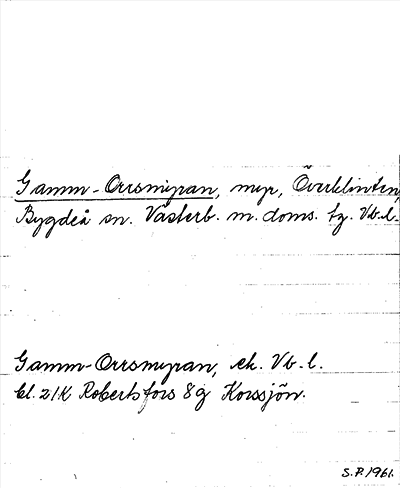 Gamm-Orrsmyran, myr, Överklinten,
Bygdeå sn. Västerb. m. doms. tg. Vb. l.
Gamm-Orrsmyran, ek. Vb. l.
bl. 21K Robertsfors 8g Korssjön.
S.P. 1961.